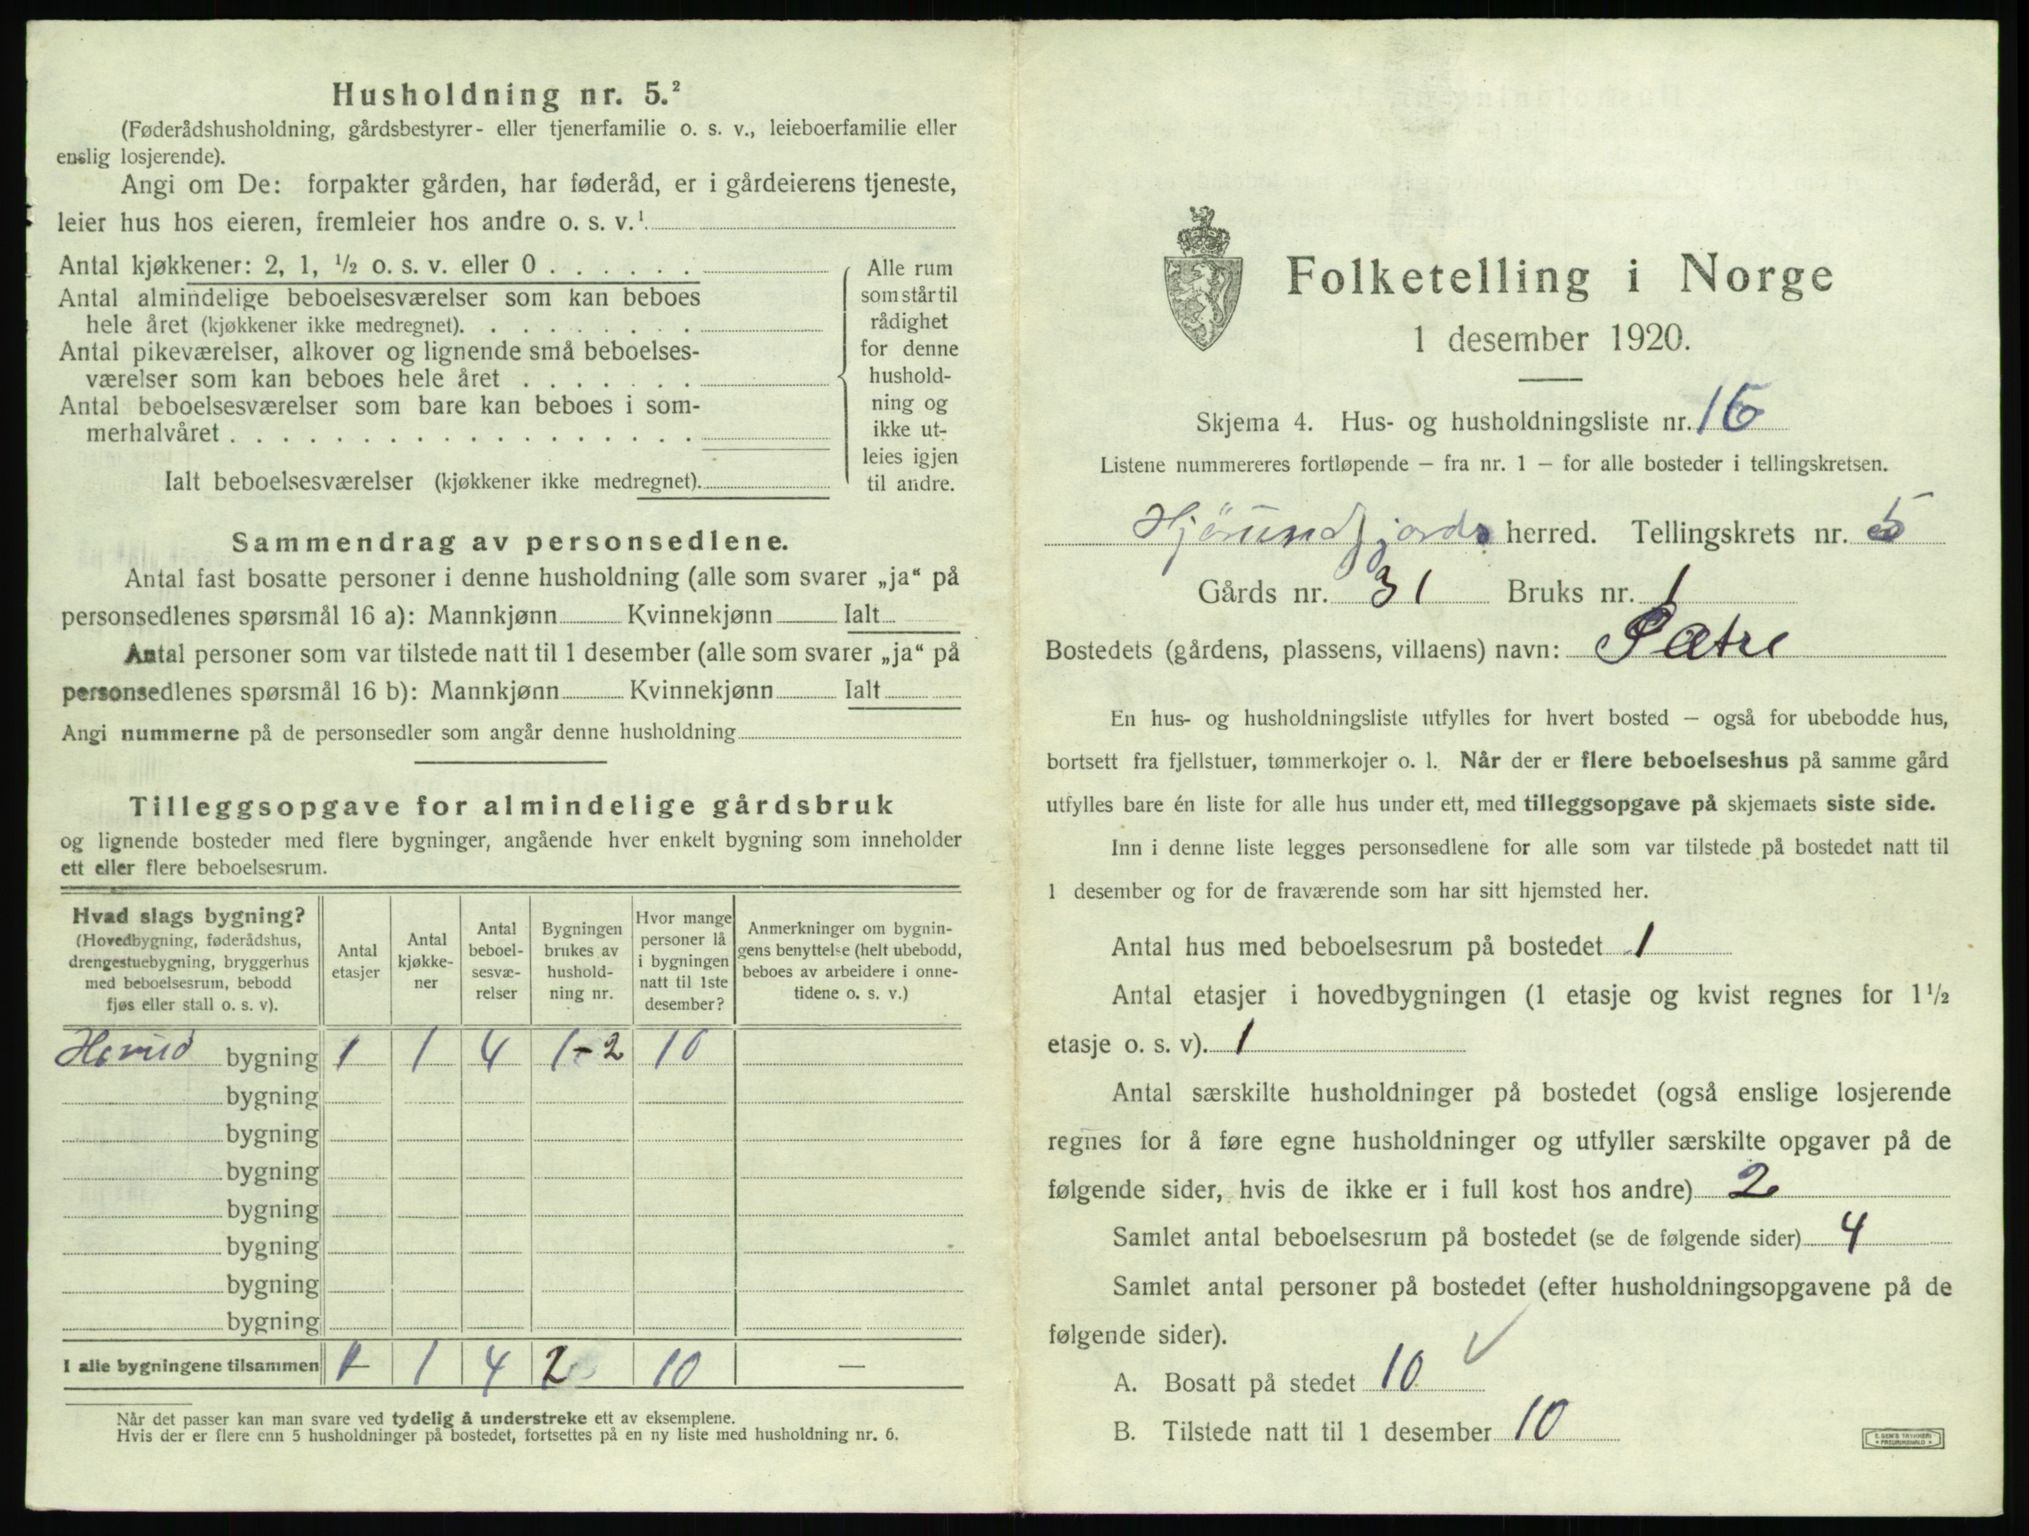 Husholdning nr. 5.²
(Føderådshusholdning, gårdsbestyrer- eller tjenerfamilie o. s. v., leieboerfamilie eller
enslig losjerende).
Angi om De: forpakter gården, har føderåd, er i gårdeierens tjeneste,
leier hus hos eieren, fremleier hos andre o. s. v.¹
Antal kjøkkener: 2, 1, ½ o. s. v. eller 0 . . . . . .
Antal almindelige beboelsesværelser som kan beboes
hele året (kjøkkener ikke medregnet). . . . . . . . .
Antal pikeværelser, alkover og lignende små beboelses-
værelser som kan beboes hele året . . . . . . .
Antal beboelsesværelser som bare kan beboes i som-
merhalvåret . . . . . . . . . . . . . . . . . .
Ialt beboelsesværelser (kjøkkener ikke medregnet).
Alle rum
som står til
rådighet
for denne
hushold-
ning og
ikke ut-
leies igjen
til andre.
Sammendrag av personsedlene.
Antal fast bosatte personer i denne husholdning (alle som svarer „ja“ på
personsedlenes spørsmål 16 a): Mannkjønn Kvinnekjønn Ialt
Antal personer som var tilstede natt til 1 desember (alle som svarer „ja“ på
personsedlenes spørsmål 16 b): Mannkjønn Kvinnekjønn Ialt
Angi nummerne på de personsedler som angår denne husholdning
Tilleggsopgave for almindelige gårdsbruk
og lignende bosteder med flere bygninger, angående hver enkelt bygning som inneholder
ett eller flere beboelsesrum.
Hvad slags bygning?
(Hovedbygning, føderådshus,
drengestuebygning, bryggerhus
med beboelsesrum, bebodd
fjøs eller stall o. s. v).
Antal
etasjer
Antal
kjøkke-
ner
Antal
beboel-
sesvæ-
relser
Bygningen
brukes av
hushold-
ning nr.
Hvor mange
personer lå
i bygningen
natt til 1ste
desember?
Anmerkninger om bygnin-
gens benyttelse (helt ubebodd,
beboes av arbeidere i onne-
tidene o. s. v.)
bygning 1 1 4 1-2 10
bygning
bygning
bygning
bygning
bygning
bygning
bygning
I alle bygningene tilsammen 1 1 4 2 10 —
Når det passer kan man svare ved tydelig å understreke ett av eksemplene.
Hvis der er flere enn 5 husholdninger på bostedet, fortsettes på en ny liste med husholdning nr. 6.
Folketelling i Norge
1 desember 1920.
Skjema 4. Hus- og husholdningsliste nr. 16
Listene nummereres fortløpende – fra nr. 1 – for alle bosteder i tellingskretsen.
Hjørundfjords herred. Tellingskrets nr. 5
Gårds nr. 31 Bruks nr. 1
Bostedets (gårdens, plassens, villaens) navn: Sætre
En hus- og husholdningsliste utfylles for hvert bosted – også for ubebodde hus,
bortsett fra fjellstuer, tømmerkojer o. l. Når der er flere beboelseshus på samme gård
utfylles bare én liste for alle hus under ett, med tilleggsopgave på skjemaets siste side.
Inn i denne liste legges personsedlene for alle som var tilstede på bostedet natt til
1 desember og for de fraværende som har sitt hjemsted her.
Antal hus med beboelsesrum på bostedet 1
Antal etasjer i hovedbygningen (1 etasje og kvist regnes for 1½
etasje o. s. v). 1
Antal særskilte husholdninger på bostedet (også enslige losjerende
regnes for å føre egne husholdninger og utfyller særskilte opgaver på de
følgende sider, hvis de ikke er i full kost hos andre) 2
Samlet antal beboelsesrum på bostedet (se de følgende sider) 4
Samlet antal personer på bostedet (efter husholdningsopgavene på de
følgende sider).
A. Bosatt på stedet 10
B. Tilstede natt til 1 desember 10